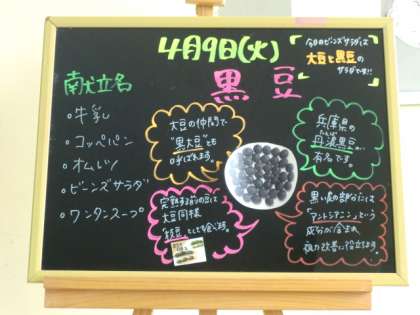 4月9日(火)
今日のビーンズサラダは
大豆と黒豆の
サラダです!!
黒豆
献立名
・牛乳
・コッペパン
・オムレツ
・ビーンズサラダ
・ワンタンスープ
大豆の仲間で
"黒大豆"とも
呼ばれます。
兵庫県の
丹波黒豆
たんば
有名です。
完熟する前の豆は
大豆同様
「枝豆」としても食べます。
黒い皮の部分には
「アントシアニン」という
成分が含まれ、
視力改善に役立ちます。